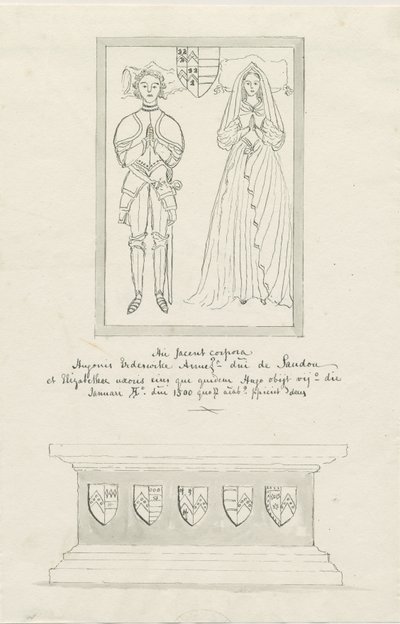 Hic Jacent corpora
Hugonis Erdeswicke Armigo. dni de Sandon
et Elizabethae uxoris eius que quidem Hugo obijt vijo. die
Januari Ao. dni 1500 quoR aiabo. ppiciet deus